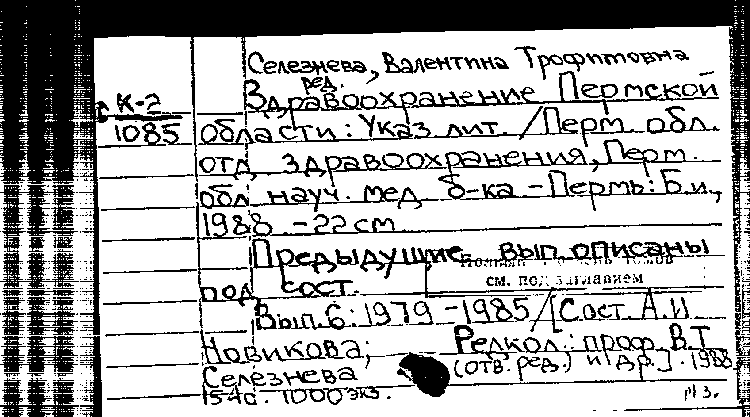 Селезнева, Валентина Трофимовна
ред.
К-2
1085
Здравоохранение Пермской
области: Указ. лит. / Перм. обл.
отд. здравоохранения, Перм.
обл. науч. мед. б-ка - Пермь: Б.и.,
1988. - 22 см
Предыдущие вып. описаны
под сост.
см. под заглавием
Вып. 6: 1979 - 1985 / [Сост. А.И.
Новикова; Редкол.: проф. В.Т.
Селезнева (отв. ред.) и др.]. 1988
154 с. 1000 экз.